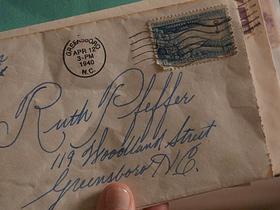 GREENSBORO
APR 12
3-PM
1940
N.C.
Ruth Pfeffer
119 Woodland Street
Greensboro N.C.